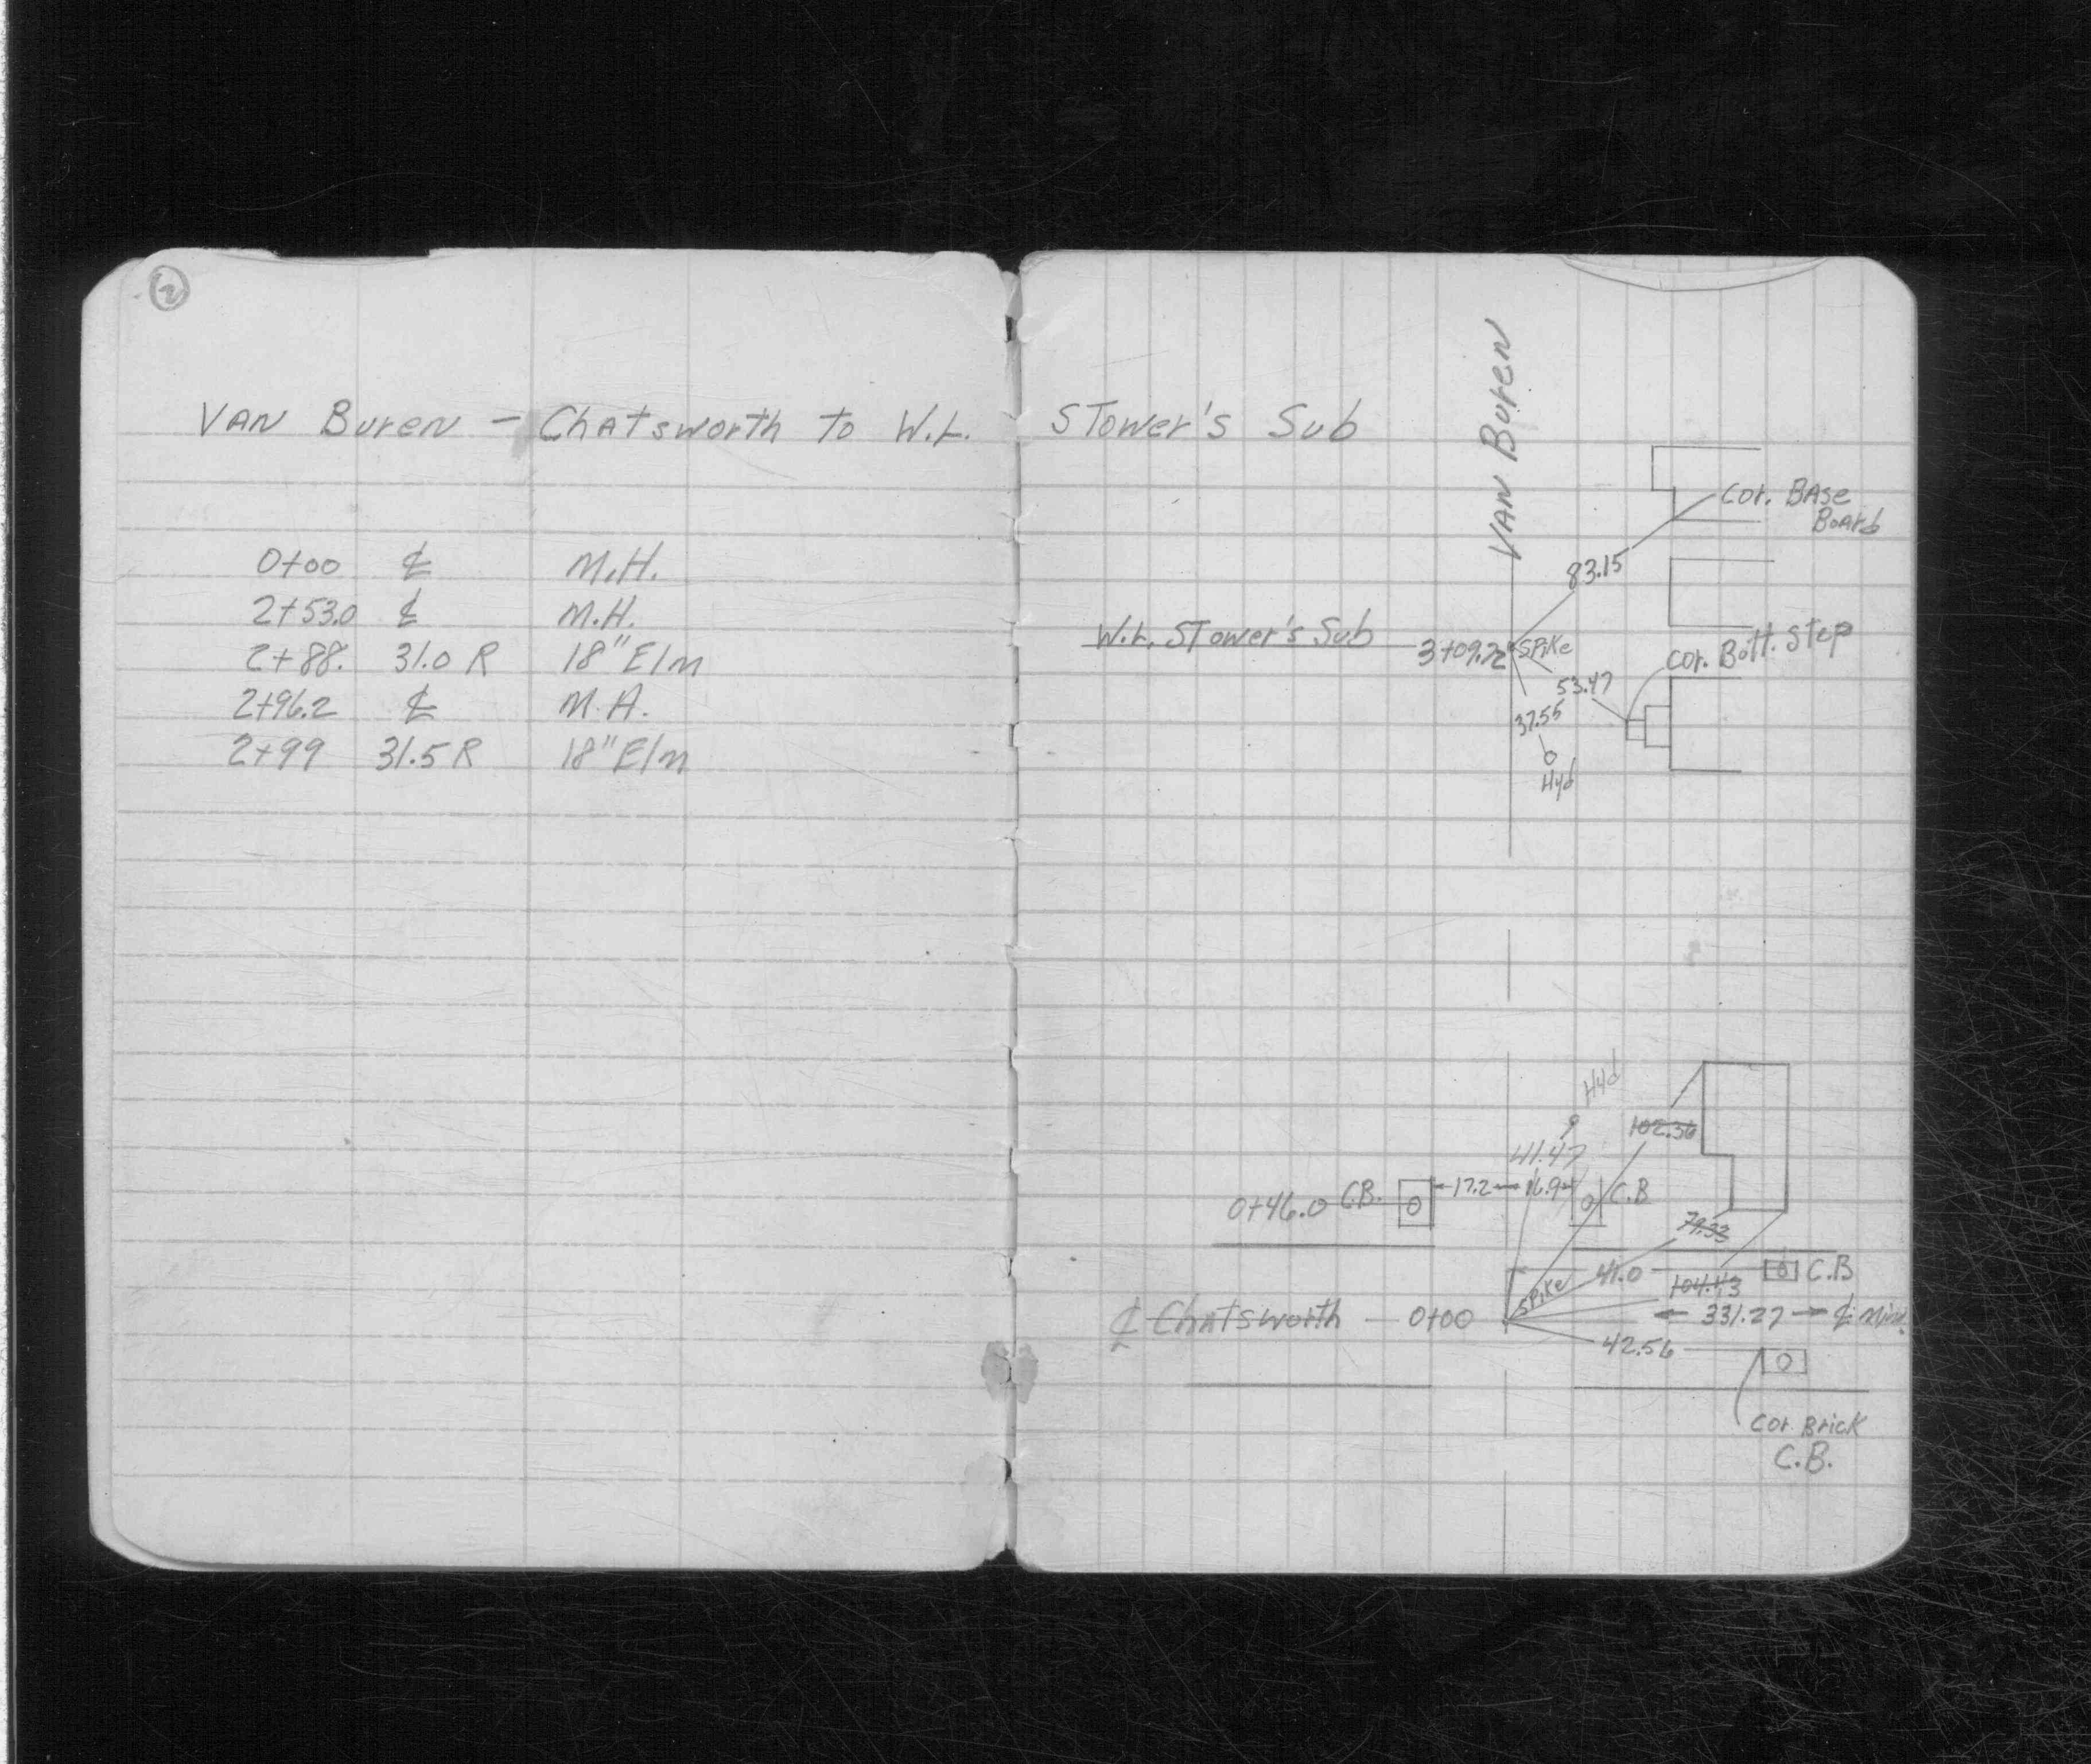 2
VAN Buren - Chatsworth to W.L. Stower's Sub
0+00 ℄ M.H.
2+53.0 ℄ M.H.
2+88. 31.0 R 18" Elm
2+96.2 ℄ M.H.
2+99 31.5 R 18" Elm
VAN Buren
Cor. BAse
Board
83.15
W.L. Stower's Sub 3+09.22 SPiKe
Cor. Bott. Step
53.47
37.55
Hyd
Hyd
102.36
41.47
0+46.0 C.B. 17.2 16.9 C.B
79.33
41.0 C.B
SPiKe
104.43
℄ Chatsworth - 0+00 331.27 ℄
42.56
Cor. Brick
C.B.